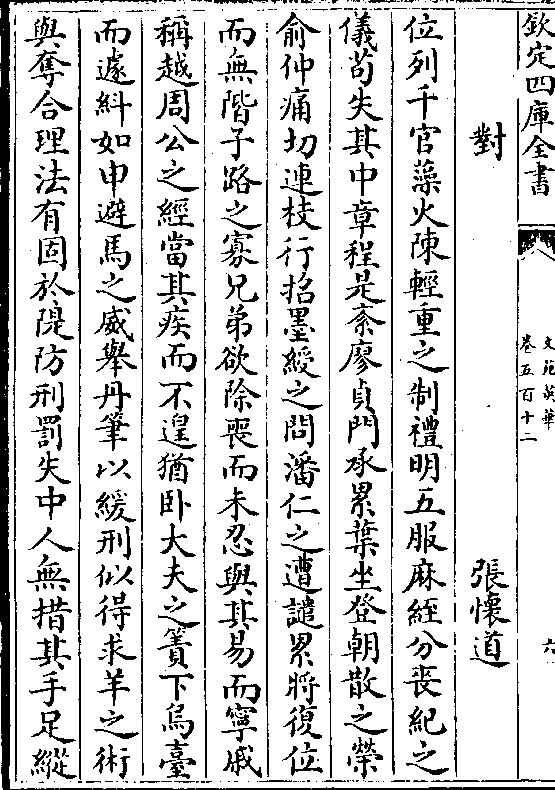 欽定四庫全書
文苑英華
卷五百十二
六
對
張懷道
位列千官藻火陳輕重之制禮明五服麻絰分喪紀之
儀茍失其中章程是紊廖貞門承累葉坐登朝散之榮
俞仲痛切連枝行招墨綬之問潘仁之遭譴累將復位
而無階子路之寡兄弟欲除喪而未忍與其易而寧戚
稱越周公之經當其疾而不遑猶卧大夫之簀下烏臺
而遽糾如申避馬之威舉丹筆以緩刑似得求羊之術
與奪合理法有固於隄防刑罰失中人無措其手足縱